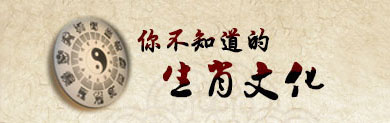 你不知道的
生肖文化